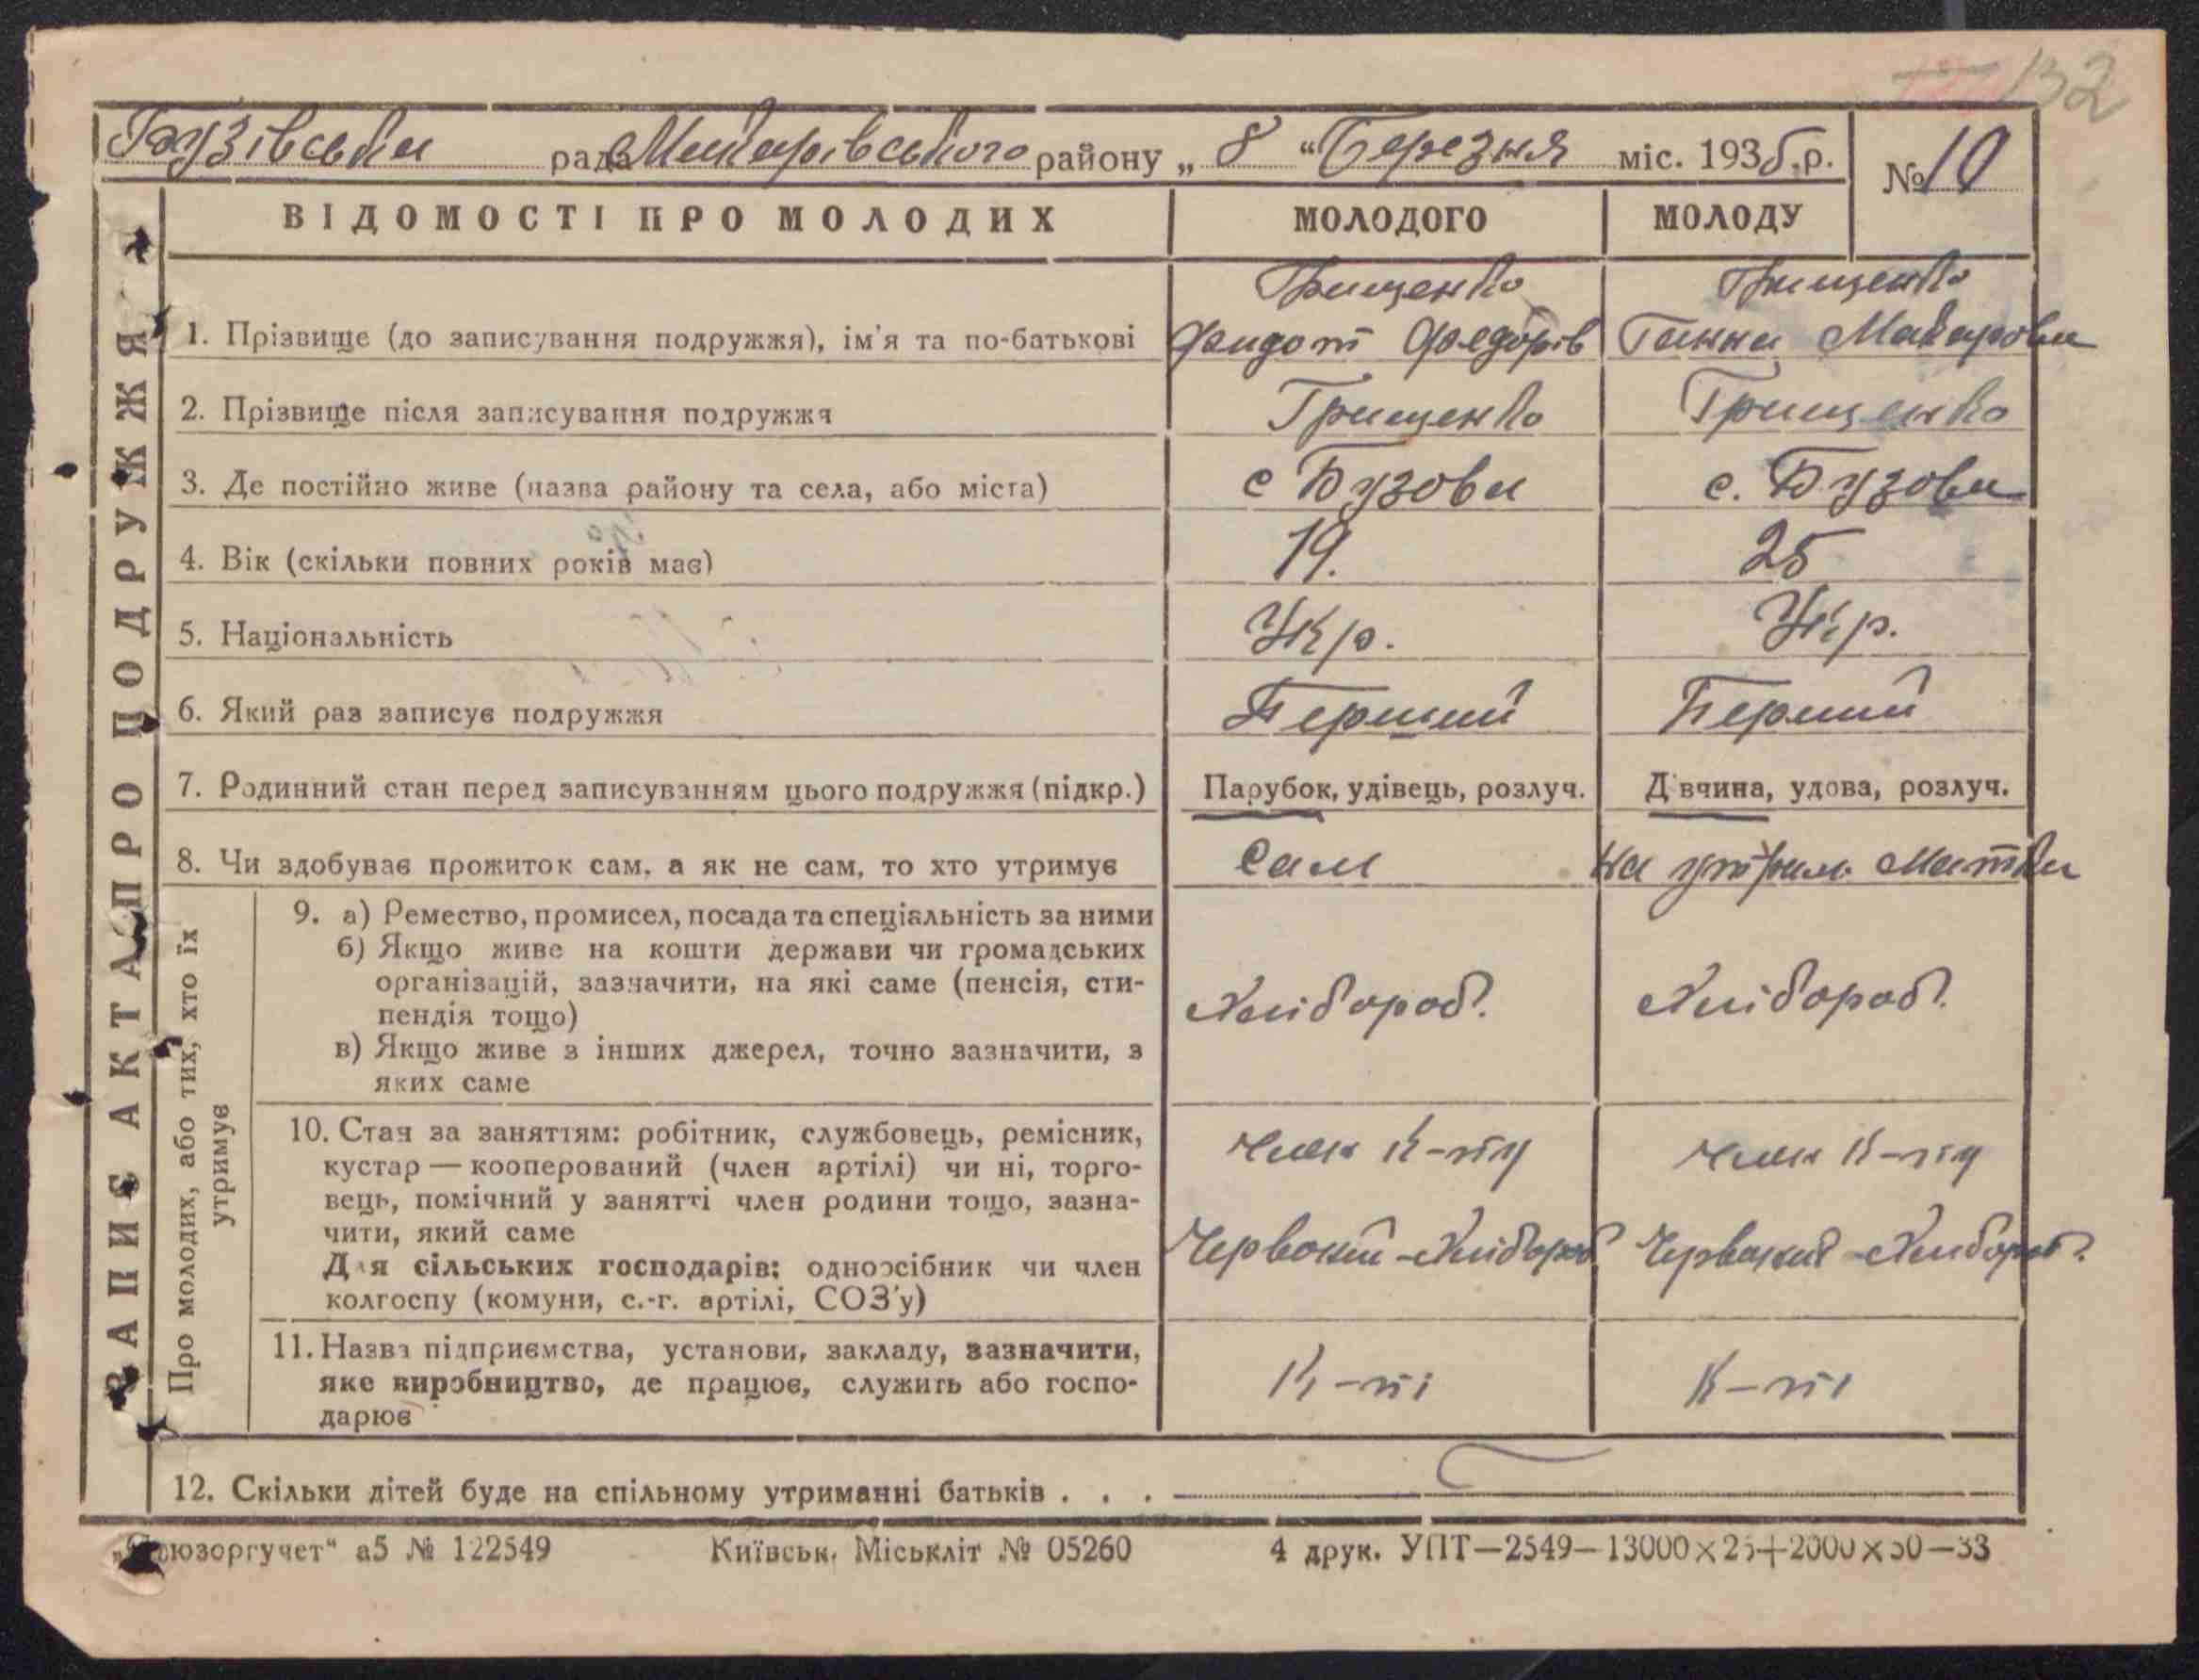 132
Бузівська рада Макарівського району „ 8 “ Березня міс. 1935 р. № 10
ВІДОМОСТІ ПРО МОЛОДИХ МОЛОДОГО МОЛОДУ
Грищенко Грищенко
1. Прізвище (до записування подружжя), ім'я та по-батькові Федот Федорів Ганна Макарова
2. Прізвище після записування подружжя Грищенко Грищенко
3. Де постійно живе (назва району та села, або міста) с Бузова с. Бузова
4. Вік (скільки повних років має) 19. 25
5. Національність Укр. Укр.
6. Який раз записує подружжя Перший Перший
7. Родинний стан перед записуванням цього подружжя (підкр.) Парубок, удівець, розлуч. Дівчина, удова, розлуч.
8. Чи здобуває прожиток сам, а як не сам, то хто утримує Сам на утрим. Матки
9. а) Ремество, промисел, посада та спеціальність за ними
б) Якщо живе на кошти держави чи громадських
організацій, зазначити, на які саме (пенсія, сти-
пендія тощо)
в) Якщо живе з інших джерел, точно зазначити, з
яких саме
Хлібороб. Хлібороб.
10. Стан за заняттям: робітник, службовець, ремісник,
кустар — кооперований (член артілі) чи ні, торго-
вець, помічний у занятті член родини тощо, зазна-
чити, який саме
Для сільських господарів: одноосібник чи член
колгоспу (комуни, с.-г. артілі, СОЗ'у)
Член к-пу Член к-пу
Червоний-Хлібороб Червоний-Хлібороб.
11. Назва підприємства, установи, закладу, зазначити,
яке виробництво, де працює, служить або госпо-
дарює
К-пі К-пі
12. Скільки дітей буде на спільному утриманні батьків . . .
ЗАПИС АКТА ПРО ПОДРУЖЖЯ
Про молодих, або тих, хто їх
утримує
„Союзоргучет“ а5 № 122549 Київськ. Міськліт № 05260 4 друк. УПТ—2549—13000×25+2000×50—33